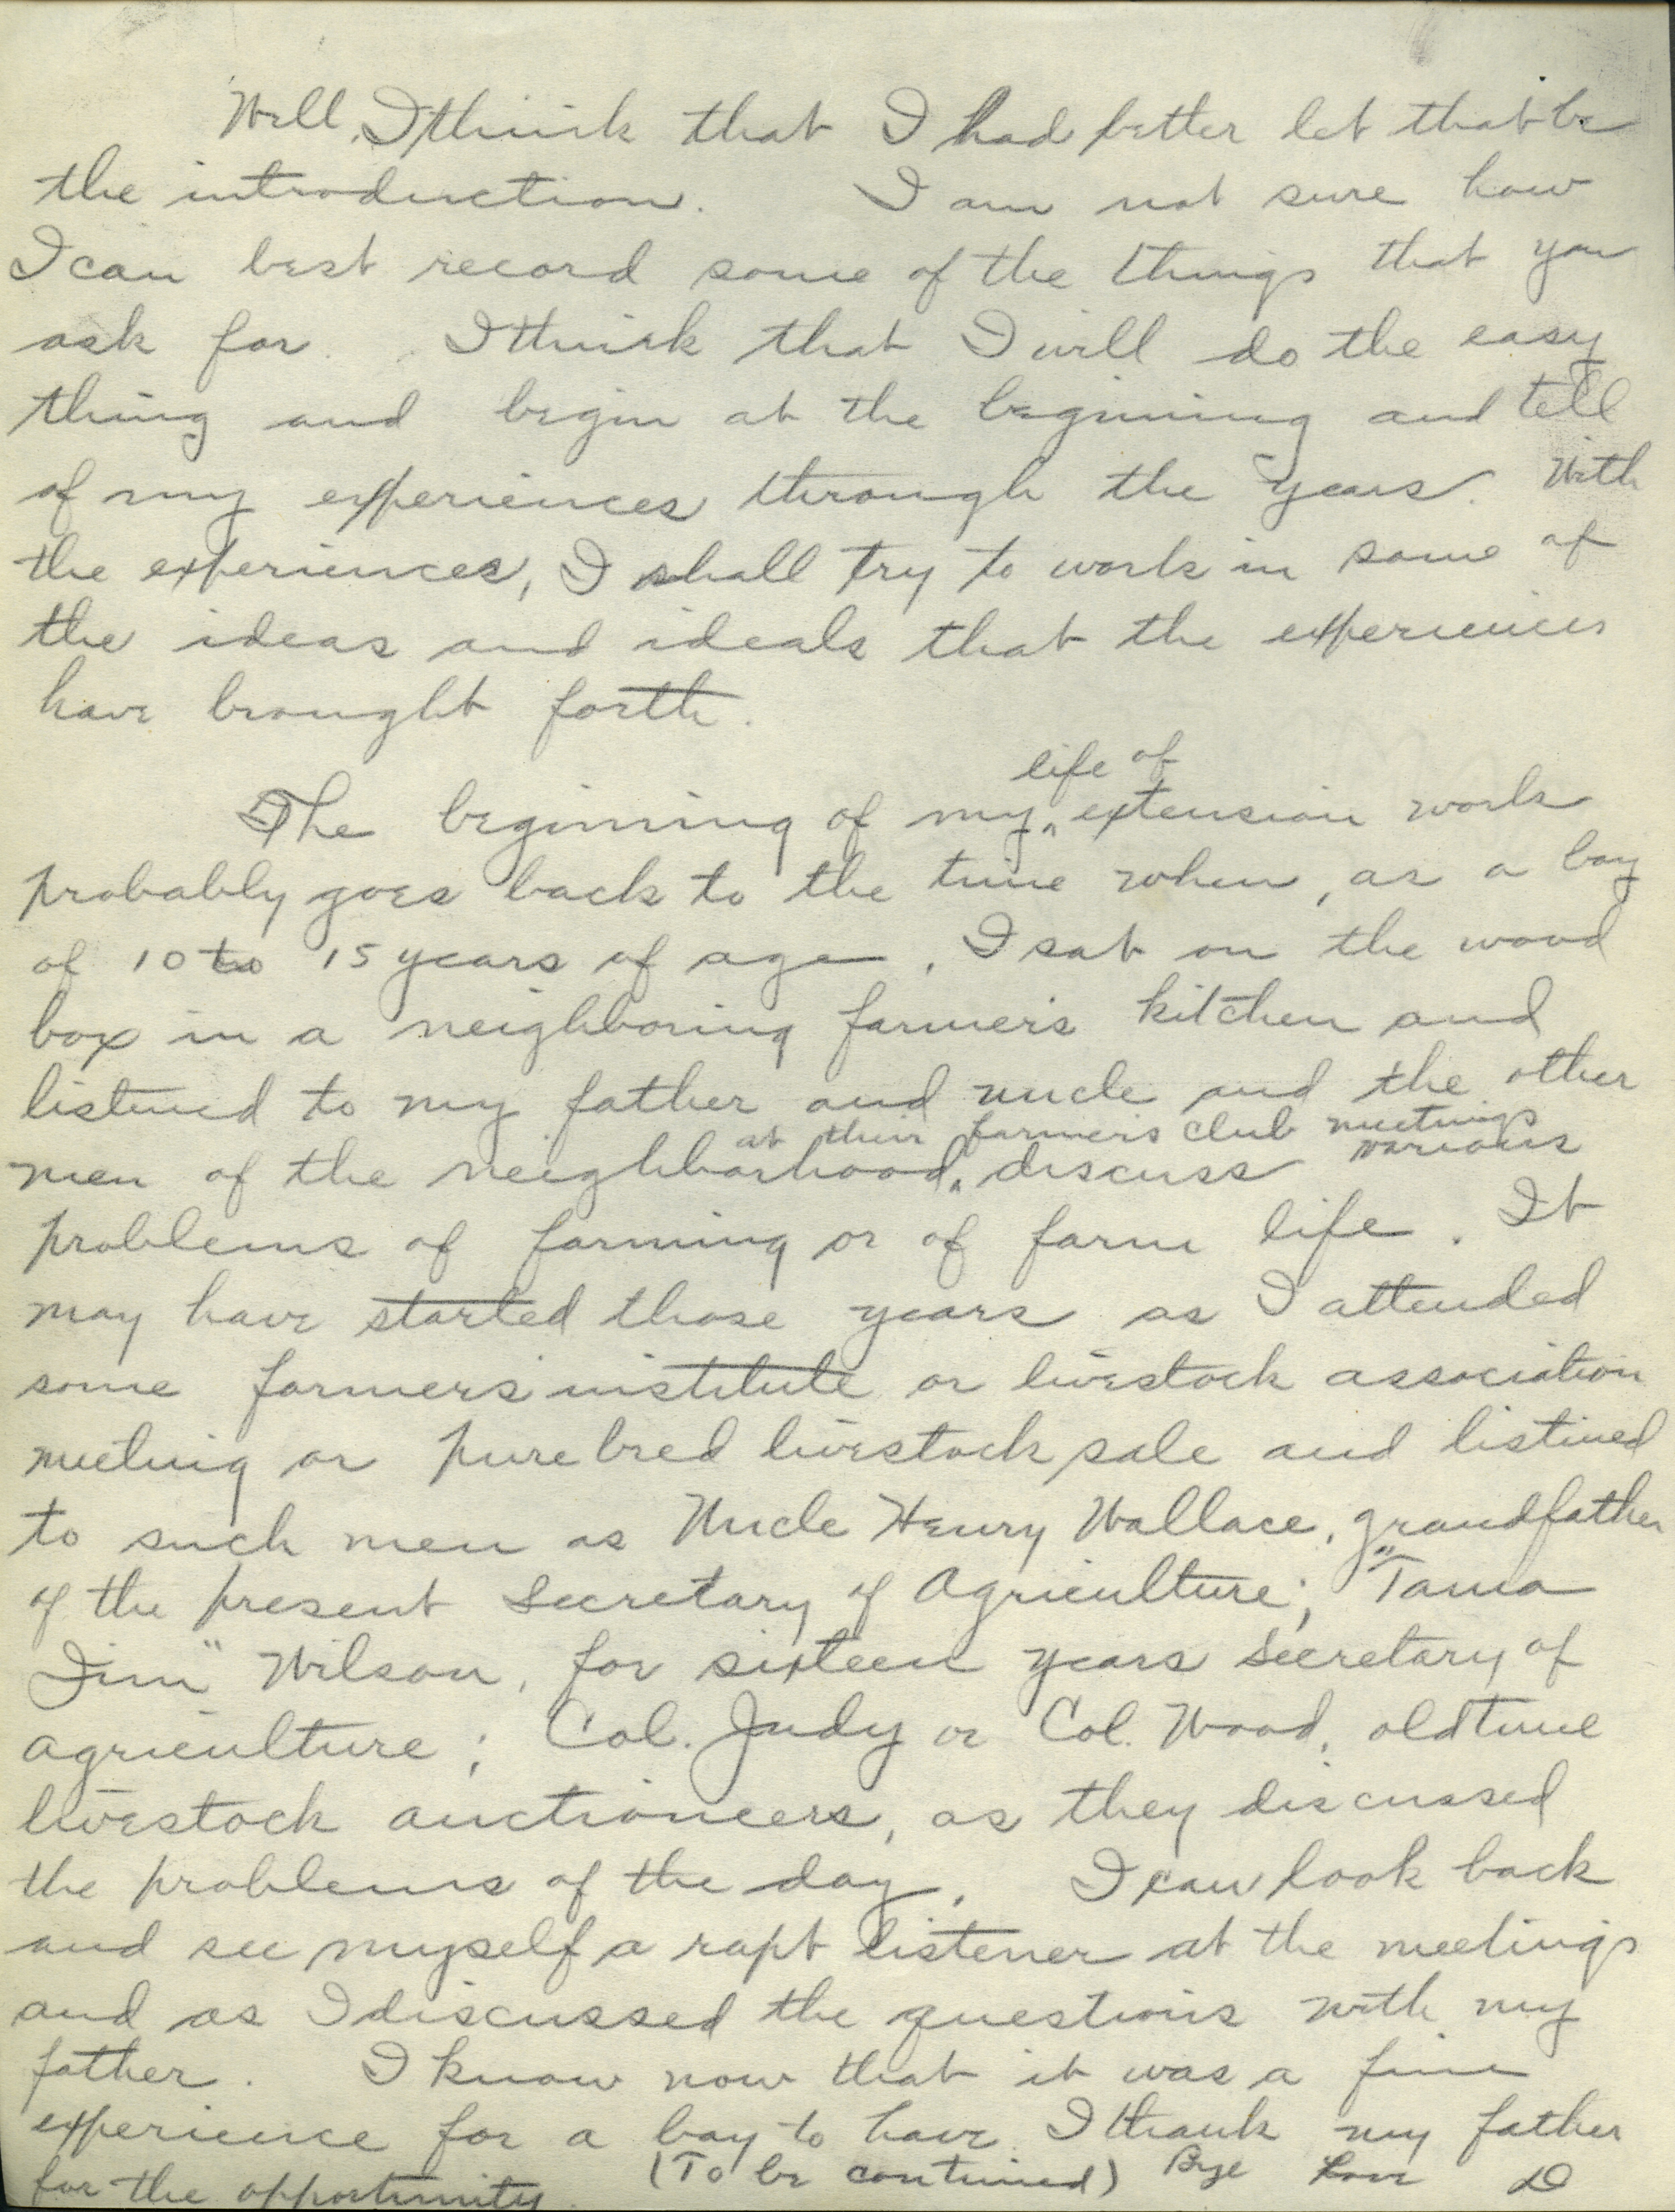 Well, I think that I had better let that be
the introduction. I am not sure how
I can best record some of the things that you
ask for. I think that I will do the easy
thing and begin at the beginning and tell
of my experiences through the years. With
the experiences, I shall try to work in some of
the ideas and ideals that the experiences
have brought forth.
life of
The beginning of my ^ extension work
probably goes back to the time when, as a boy
of 10 to 15 years of age, I sat on the wood
box in a neighboring farmers kitchen and
listened to my father and uncle and the other
at their farmers club meetings
men of the neighborhood ^ discuss various
problems of farming or of farm life. It
may have started those years as I attended
some farmers institute or livestock association
meeting or pure bred livestock sale and listened
to such men as Uncle Henry Wallace, grandfather
of the present Secretary of Agriculture; "Tama
Jim" Wilson, for sixteen years Secretary of
Agriculture; Col. Judy or Col. Wood, old time
livestock auctioneers, as they discussed
the problems of the day. I can look back
and see myself a rapt listener at the meetings
and as I discussed the questions with my
father. I know now that it was a fine
experience for a boy to have. I thank my father
for the opportunity. (To be continued) Bye Love D